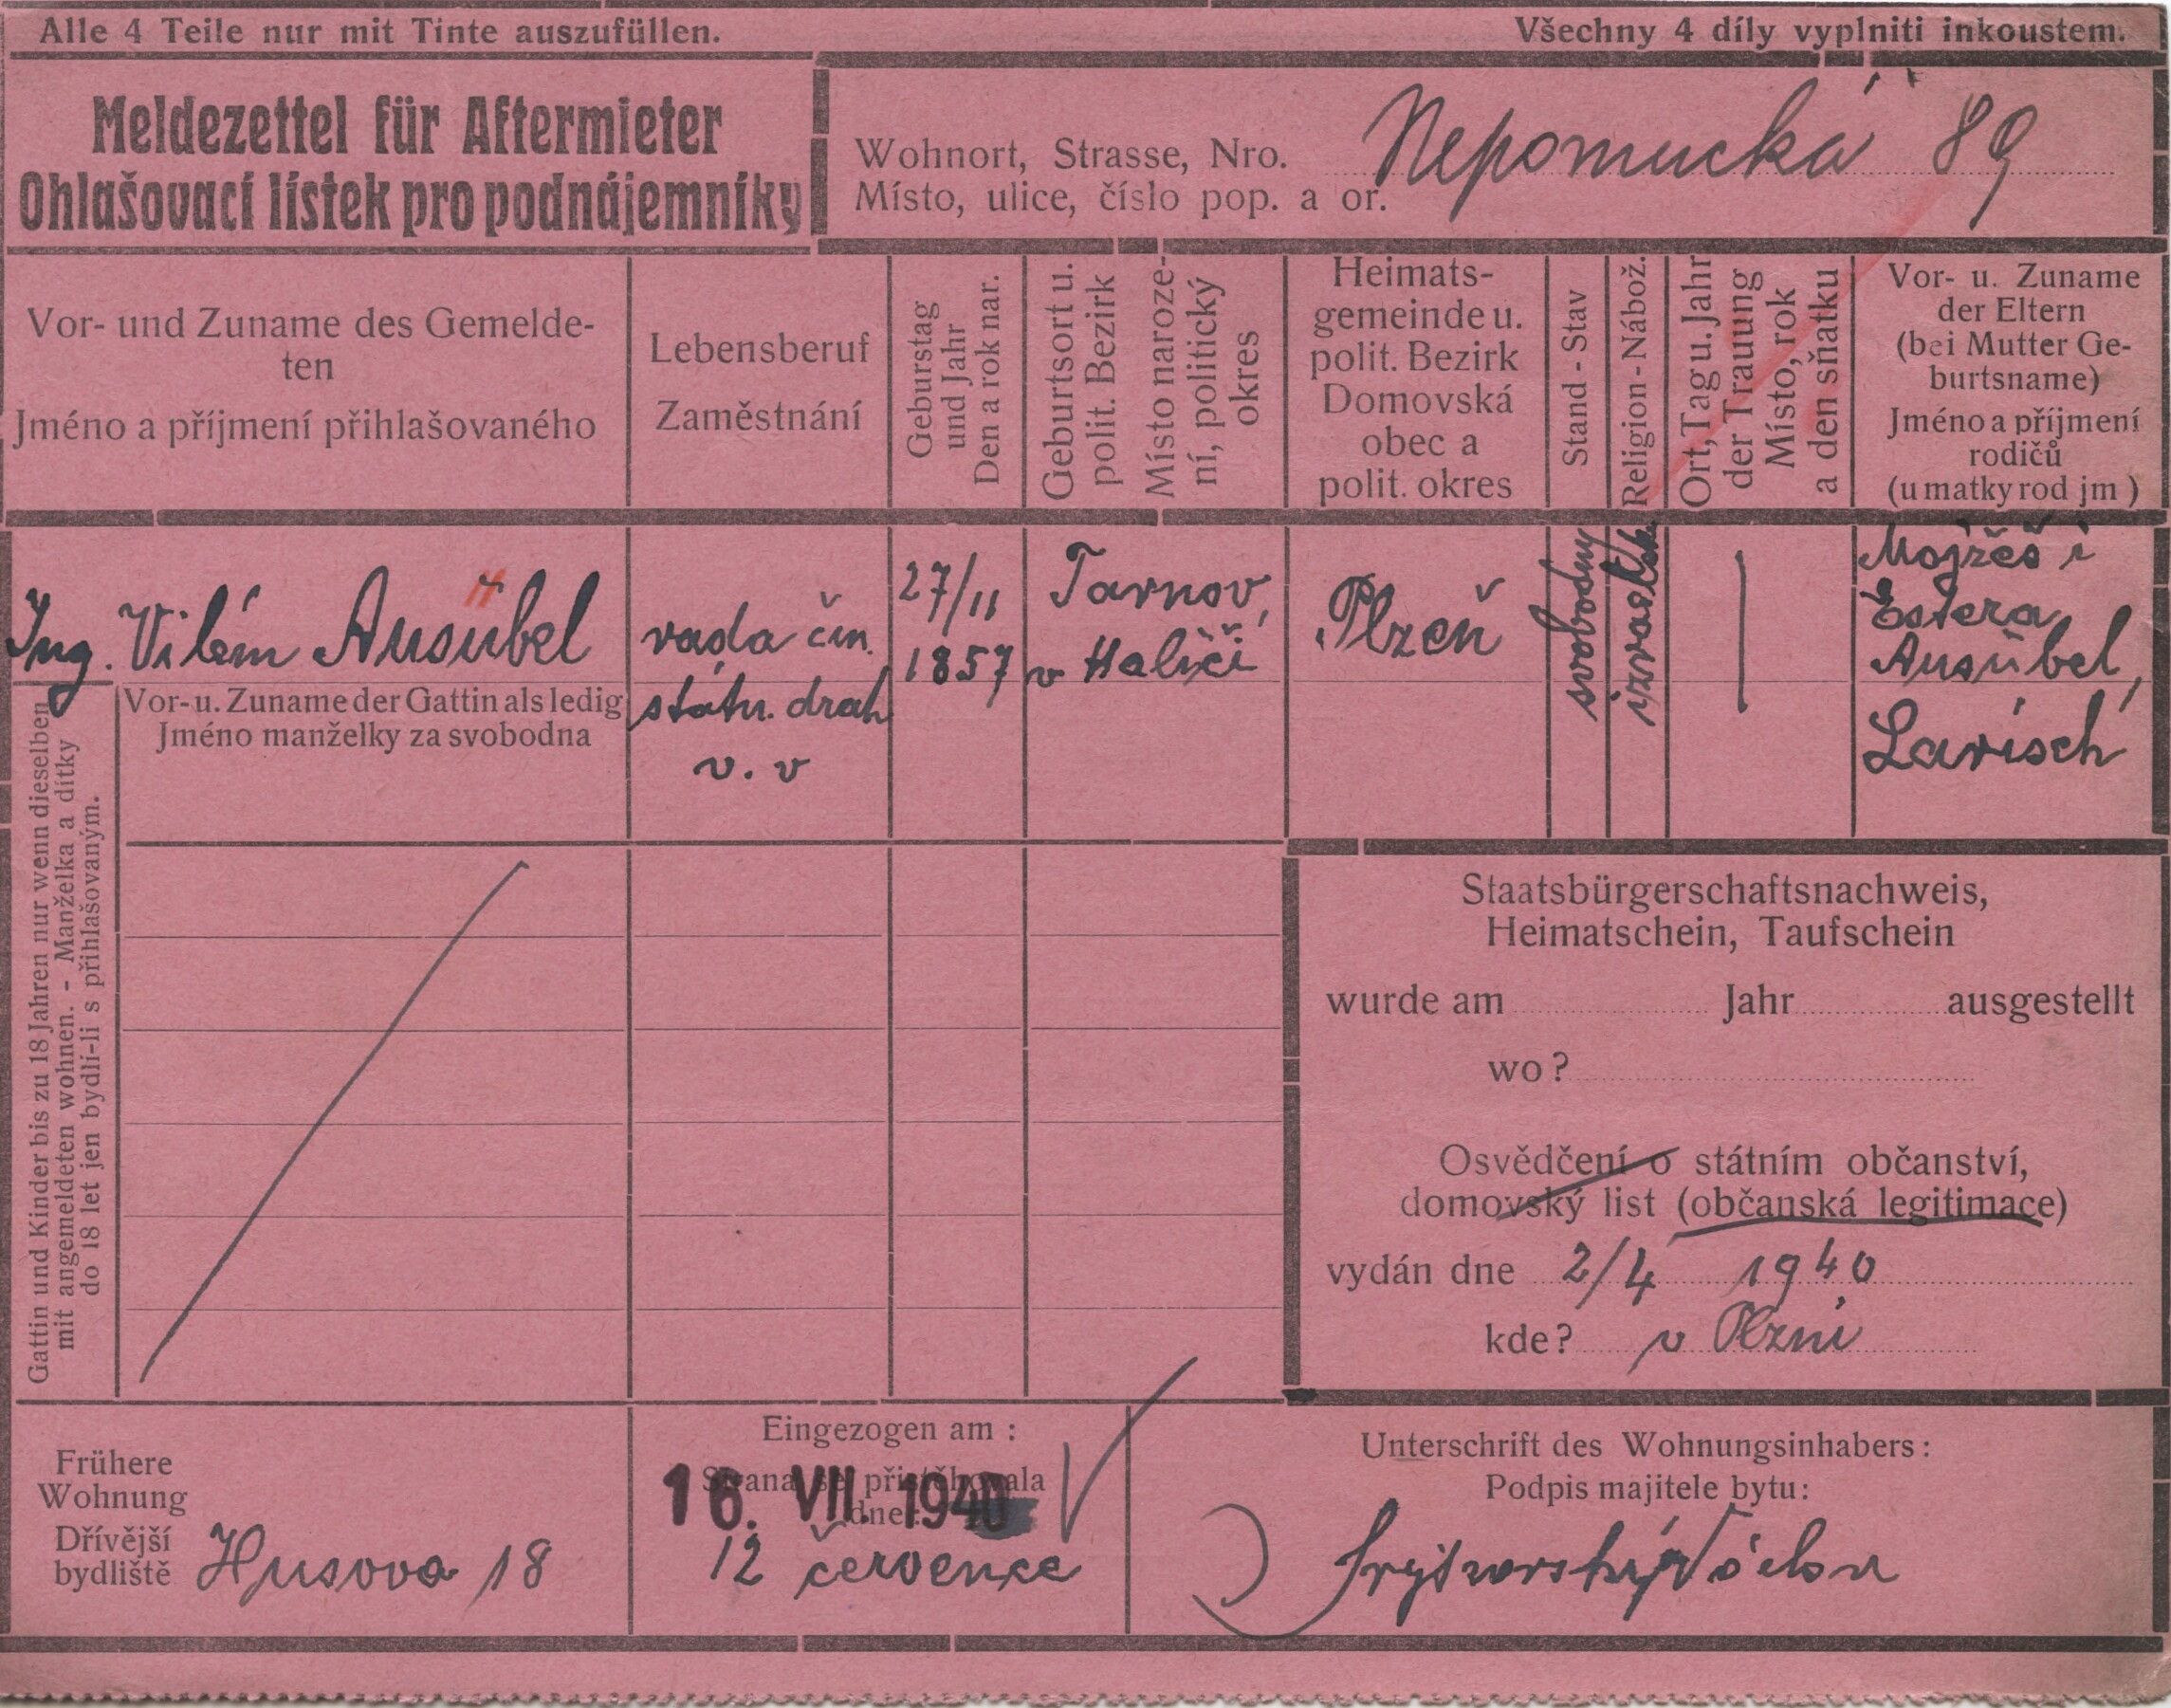 Alle 4 Teile nur mit Tinte auszufüllen.
Všechny 4 díly vyplniti inkoustem.
Meldezettel für Aftermieter
Ohlašovací lístek pro podnájemníky
Wohnort, Strasse, Nro.
Místo, ulice, číslo pop. a or.
Nepomucká 89
Vor- und Zuname des Gemelde-
ten
Jméno a příjmení přihlašovaného
Lebensberuf
Zaměstnání
Geburstag
und Jahr
Den a rok nar.
Geburtsort u.
polit. Bezirk
Místo naroze-
ní, politický
okres
Heimats-
gemeinde u.
polit. Bezirk
Domovská
obec a
polit. okres
Stand - Stav
Religion - Nábož.
Ort, Tag u. Jahr
der Trauung
Místo, rok
a den sňatku
Vor- u. Zuname
der Eltern
(bei Mutter Ge-
burtsname)
Jméno a příjmení
rodičů
(u matky rod jm )
Ing. Vilém Ausübel
rada čin.
státn. drah
v. v
27/11
1857
Tarnov,
v Haliči
Plzeň
svobodný
Mojžéš i
Estera
Ausübel,
Larisch
Vor- u. Zuname der Gattin als ledig
Jméno manželky za svobodna
Gattin und Kinder bis zu 18 Jahren nur wenn dieselben
mit angemeldeten wohnen. - Manželka a dítky
do 18 let jen bydlí-li s přihlašovaným.
Staatsbürgerschaftsnachweis,
Heimatschein, Taufschein
wurde am Jahr ausgestellt
wo?
Osvědčení o státním občanství,
domovský list (občanská legitimace)
vydán dne 2/4 1940
kde? v Plzni
Frühere
Wohnung
Dřívější
bydliště Husova 18
Eingezogen am :
Strana se přistěhovala
dne:
16. VII. 1940
12 července
Unterschrift des Wohnungsinhabers :
Podpis majitele bytu :